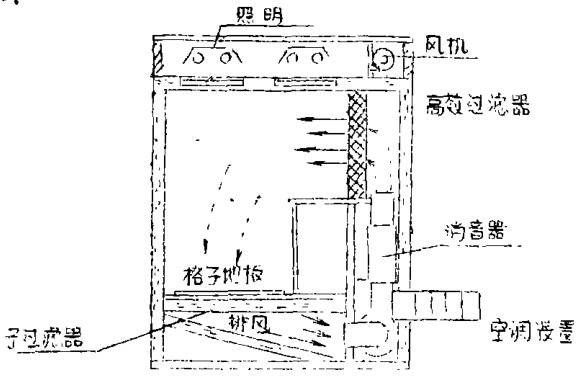 照明
风机
高效过滤器
消音器
格子地板
子过滤器
排风
空调设置